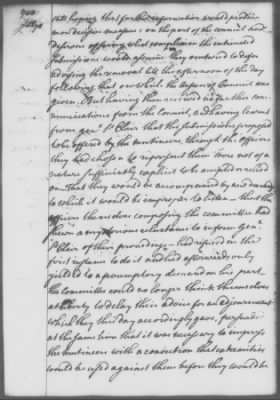 state hoping that further information would produce
more decisive measures on the part of the council and
desirous of seeing what complexion the intimated
submissions would assume they continued to defer
advising the removal till the afternoon of the day
following that on which the answer of Council was
given. But having then received no further com-
munications from the Council, and having learnt
from genl. St. Clair that the submissions proposed
to be offered by the mutineers, through the officers
they had chosen to represent them were not of a
nature sufficiently explicit to be accepted or relied
on, That they would be accompanied by new demands
to which it would be improper to listen - that the
officers themselves composing the committee had
shewn a mysterious reluctance to inform genl.
St. Clair of their proceedings - had refused in the
first instance to do it and had afterwards only
yielded to a peremptory demand on his part,
The Committee could no longer think themselves
at liberty to delay their advice for an adjournment
which they this day accordingly gave, persuaded
at the same time that it was necessary to impress
the mutineers with a conviction that extremities
would be used against them before they would be